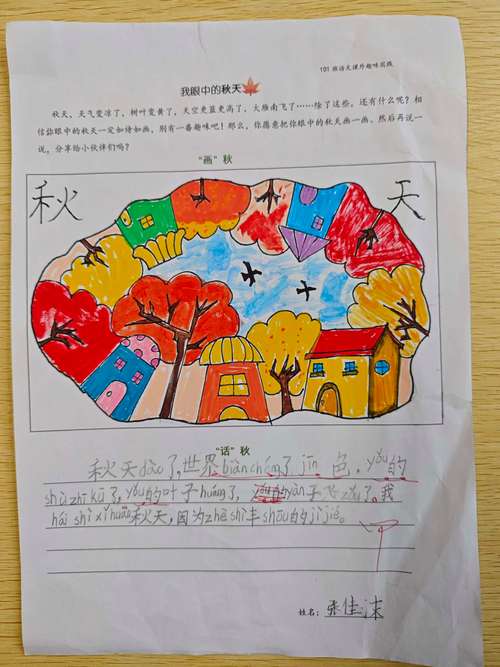 101班语文课外趣味实践
我眼中的秋天
秋天,天气变凉了,树叶变黄了,天空更蓝更高了,大雁南飞了……除了这些,还有什么呢?相
信你眼中的秋天一定如诗如画,别有一番趣味吧!那么,你愿意把你眼中的秋天画一画,然后再说一
说,分享给小伙伴们吗?
“画”秋
秋 天
“话”秋
秋天dào了,世界biàn chéng了jīn色。yǒu的
shù zhī kū了,yǒu的叶子huáng了,yàn子飞zǒu了。我
hái shì xǐ huān秋天,因为zhè shì丰shōu的jì jié。
姓名:张佳沫